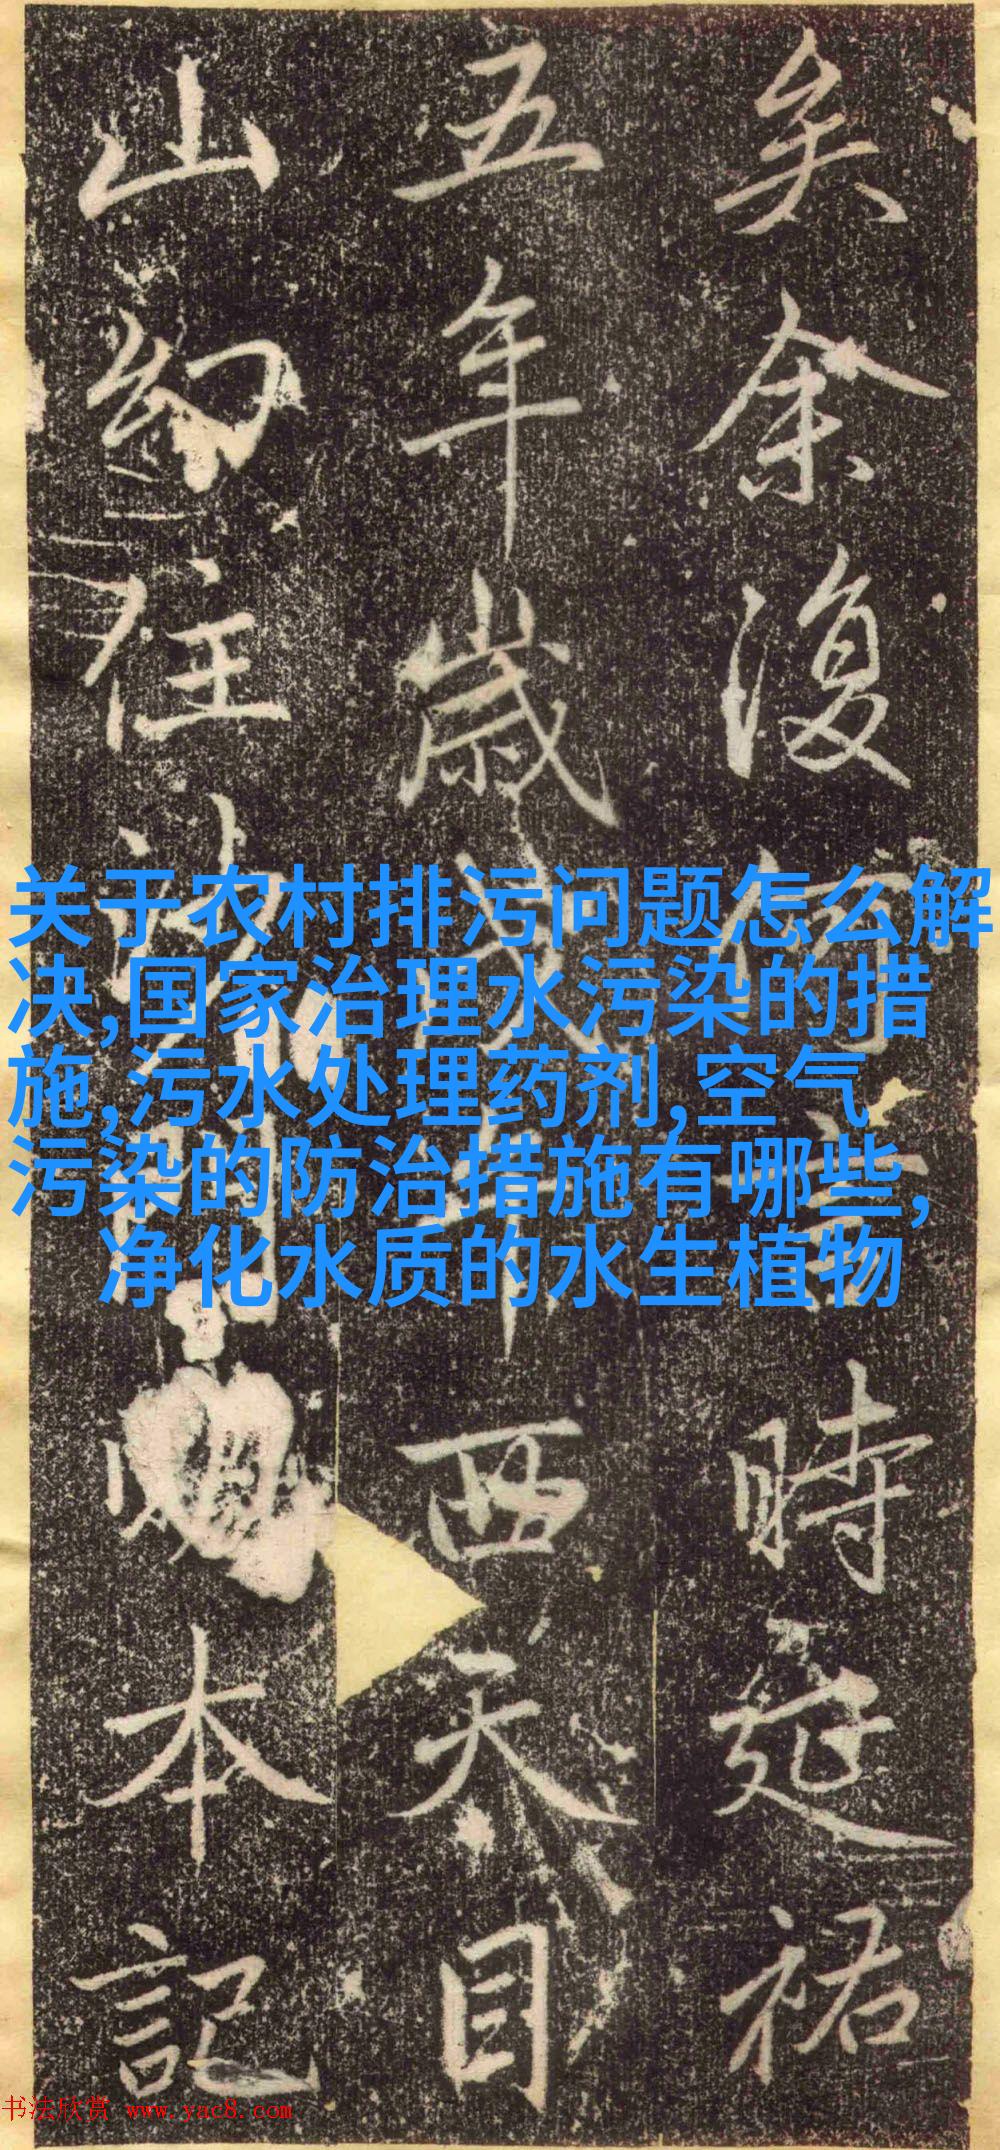 矣余復何言時延祐
五年歲戊午西天目
山幻住沙門明本記
关于农村排污问题怎么解
决,国家治理水污染的措
施,污水处理药剂,空气
污染的防治措施有哪些,
净化水质的水生植物
书法欣赏 www.yac8.com